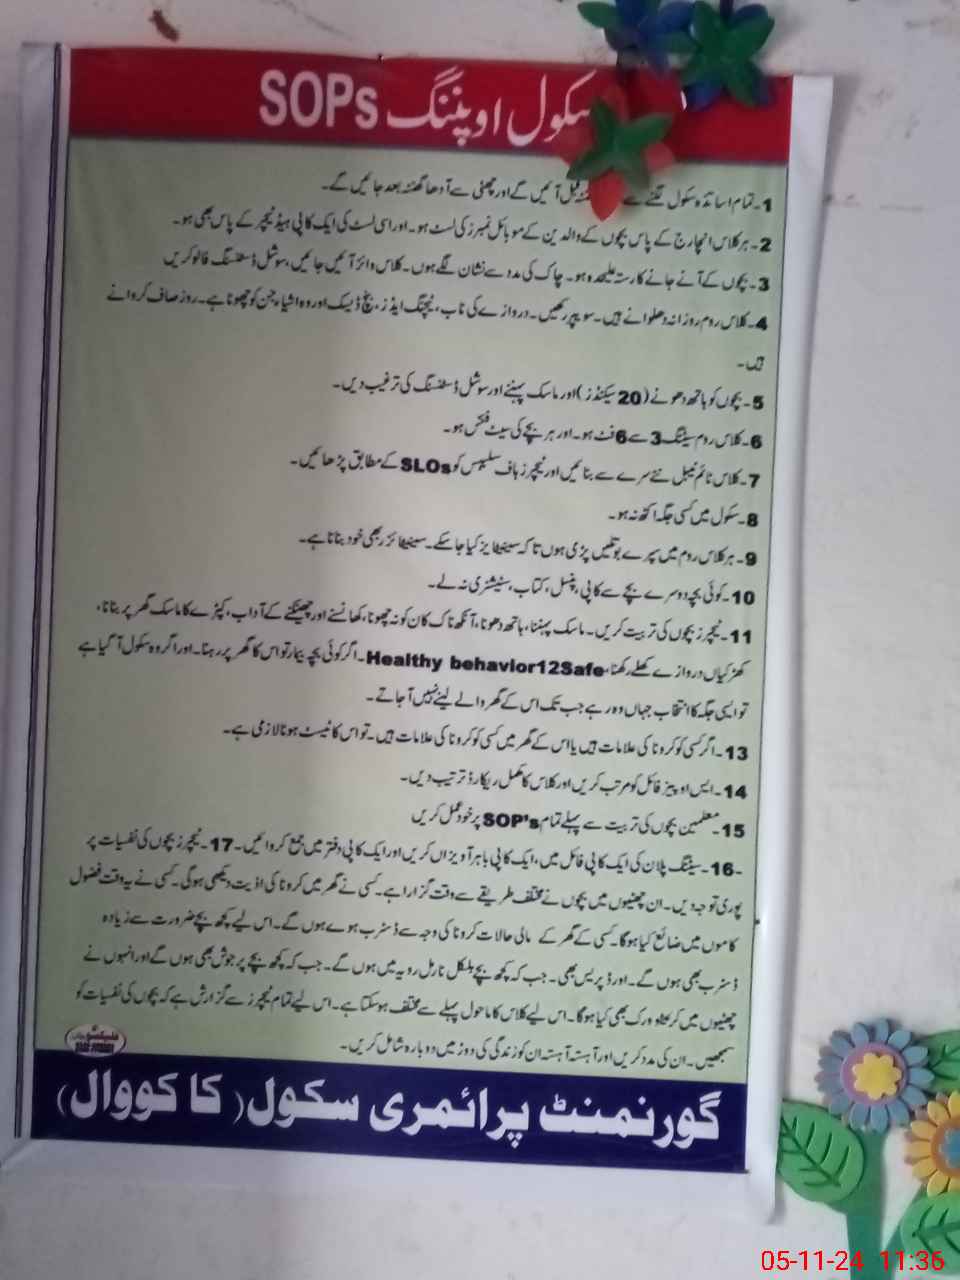 سکول اوپننگ SOPs
1۔ تمام اساتذہ سکول لگنے سے گھنٹہ قبل آئیں گے اور چھٹی سے آدھا گھنٹہ بعد جائیں گے۔
2۔ ہر کلاس انچارج کے پاس بچوں کے والدین کے موبائل نمبرز کی لسٹ ہو۔ اور اسی لسٹ کی ایک کاپی ہیڈ ٹیچر کے پاس بھی ہو۔
3۔ بچوں کے آنے جانے کا رستہ علیحدہ ہو۔ چاک کی مدد سے نشان لگے ہوں۔ کلاس وائز آئیں جائیں، سوشل ڈسٹنسنگ فالو کریں
4۔ کلاس روم روزانہ دھلوانے ہیں۔ سویپر رکھیں۔ دروازے کی ناب، ٹیچنگ ایڈز، بنچ ڈیسک اور وہ اشیاء جن کو چھونا ہے۔ روز صاف کروانے
ہیں۔
5۔ بچوں کو ہاتھ دھونے (20 سیکنڈز) اور ماسک پہننے اور سوشل ڈسٹنسنگ کی ترغیب دیں۔
6۔ کلاس روم سیٹنگ 3 سے 6 فٹ ہو۔ اور ہر بچے کی سیٹ فکس ہو۔
7۔ کلاس ٹائم ٹیبل نئے سرے سے بنائیں اور ٹیچرز ہاف سلیبس کو SLOs کے مطابق پڑھائیں۔
8۔ سکول میں کسی جگہ اکٹھ نہ ہو۔
9۔ ہر کلاس روم میں سپرے بوتلیں پڑی ہوں تا کہ سینیٹایز کیا جا سکے۔ سینیٹائزر بھی خود بنانا ہے۔
10۔ کوئی بچہ دوسرے بچے سے کاپی، پنسل، کتاب، سٹیشنری نہ لے۔
11۔ ٹیچرز بچوں کی تربیت کریں۔ ماسک پہننا، ہاتھ دھونا، آنکھ ناک کان کو نہ چھونا، کھانسنے اور چھینکنے کے آداب، کپڑے کا ماسک گھر پر بنانا،
کھڑکیاں دروازے کھلے رکھنا، Healthy behavior12Safe۔ اگر کوئی بچہ بیمار تو اس کا گھر پر رہنا۔ اور اگر وہ سکول آ گیا ہے
تو ایسی جگہ کا انتخاب جہاں وہ رہے جب تک اس کے گھر والے لینے نہیں آ جاتے۔
13۔ اگر کسی کو کرونا کی علامات ہیں یا اس کے گھر میں کسی کو کرونا کی علامات ہیں۔ تو اس کا ٹیسٹ ہونا لازمی ہے۔
14۔ ایس او پیز فائل کو مرتب کریں اور کلاس کا مکمل ریکارڈ ترتیب دیں۔
15۔ معلمین بچوں کی تربیت سے پہلے تمام SOP's پر خود عمل کریں
16۔ سیٹنگ پلان کی ایک کاپی فائل میں، ایک کاپی باہر آویزاں کریں اور ایک کاپی دفتر میں جمع کروائیں۔ 17۔ ٹیچرز بچوں کی نفسیات پر
پوری توجہ دیں۔ ان چھٹیوں میں بچوں نے مختلف طریقے سے وقت گزارا ہے۔ کسی نے گھر میں کرونا کی اذیت دیکھی ہوگی۔ کسی نے یہ وقت فضول
کاموں میں ضائع کیا ہوگا۔ کسی کے گھر کے مالی حالات کرونا کی وجہ سے ڈسٹرب ہوے ہوں گے۔ اس لیے کچھ بچے ضرورت سے زیادہ
ڈسٹرب بھی ہوں گے۔ اور ڈپریس بھی۔ جب کہ کچھ بچے بلکل نارمل رویہ میں ہوں گے۔ جب کہ کچھ بچے پر جوش بھی ہوں گے اور انہوں نے
چھٹیوں میں کریٹو ورک بھی کیا ہوگا۔ اس لیے کلاس کا ماحول پہلے سے مختلف ہو سکتا ہے۔ اس لیے تمام ٹیچرز سے گزارش ہے کہ بچوں کی نفسیات کو
سمجھیں۔ ان کی مدد کریں اور آہستہ آہستہ ان کو زندگی کی دوڑ میں دوبارہ شامل کریں۔
گورنمنٹ پرائمری سکول (کاکووال)
05-11-24 11:36